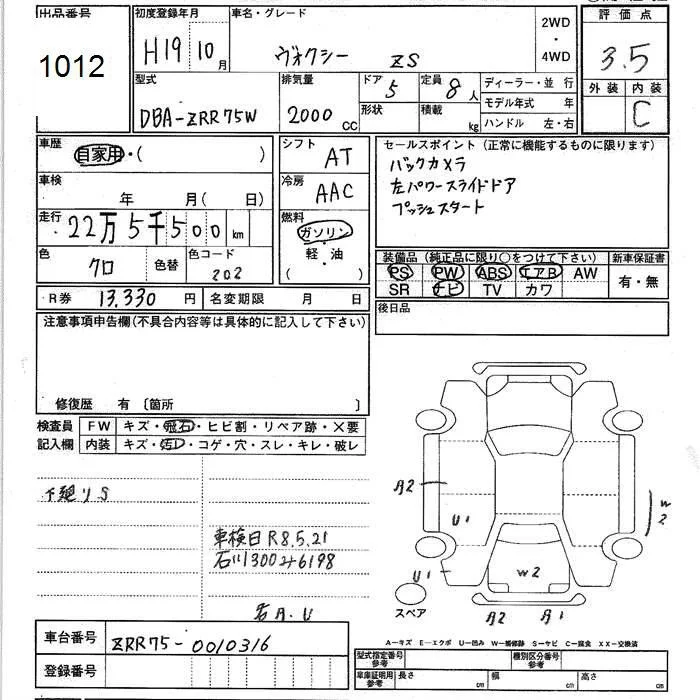 出品番号 1012
初度登録年月 H19 10月
車名・グレード ヴォクシー ZS
2WD・4WD
評価点 3.5
外装 内装 C
型式 DBA-ZRR75W
排気量 2000 CC
ドア 5
形状
定員 8人
積載 kg
ディーラー・並行
モデル年式 年
ハンドル 左・右
車歴 自家用・( )
車検 年 月( 日)
走行 22万5千500km
色 クロ 色替 色コード 202
R券 13,330円 名変期限 月 日
シフト AT
冷房 AAC
燃料 ガソリン・軽・油 ( )
セールスポイント(正常に機能するものに限ります)
バックカメラ
左パワースライドドア
プッシュスタート
装備品(純正品に限り○をつけて下さい) 新車保証書
PS PW ABS エアB AW 有・無
SR ナビ TV カワ
後日品
注意事項申告欄(不具合内容等は具体的に記入して下さい)
修復歴 有〔箇所 〕
検査員 FW キズ・飛石・ヒビ割・リペア跡・×要
記入欄 内装 キズ・汚レ・コゲ・穴・スレ・キレ・破レ
下廻りS
車検日R8.5.21
石川300
若A.U
A2
U1
W2
U1
W2
スペア
A2 A1
車台番号 ZRR75-0010316
登録番号
A-キズ E-エクボ U-凹み W-補修跡 S-サビ C-腐食 XX-交換済
型式指定番号 参考 種別区分番号 参考
車庫証明用 参考 長さ cm 幅 cm 高さ cm